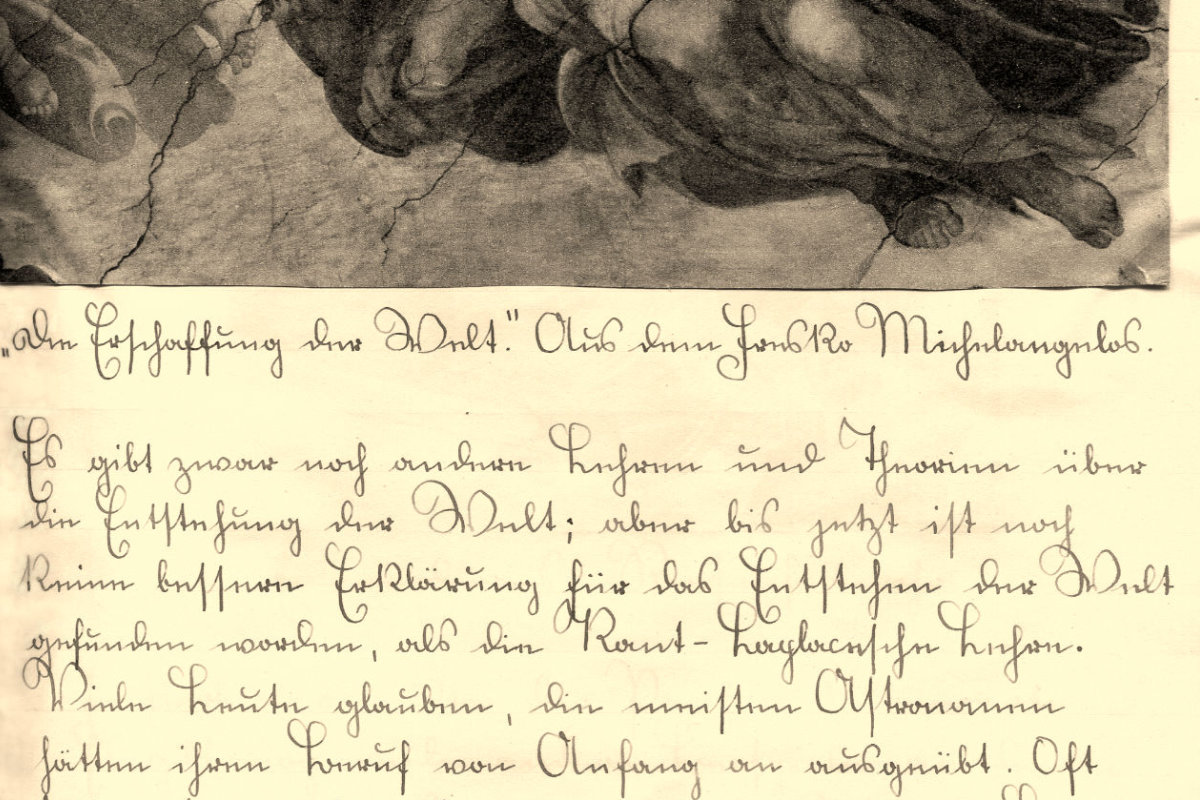 „Die Erschaffung der Welt." Aus dem Fresko Michelangelos.
Es gibt zwar noch andere Lehren und Theorien über
die Entstehung der Welt; aber bis jetzt ist noch
keine bessere Erklärung für das Entstehen der Welt
gefunden worden, als die Kant-Laplacesche Lehre.
Viele Leute glauben, die meisten Astronomen
hätten ihren Beruf von Anfang an ausgeübt. Oft